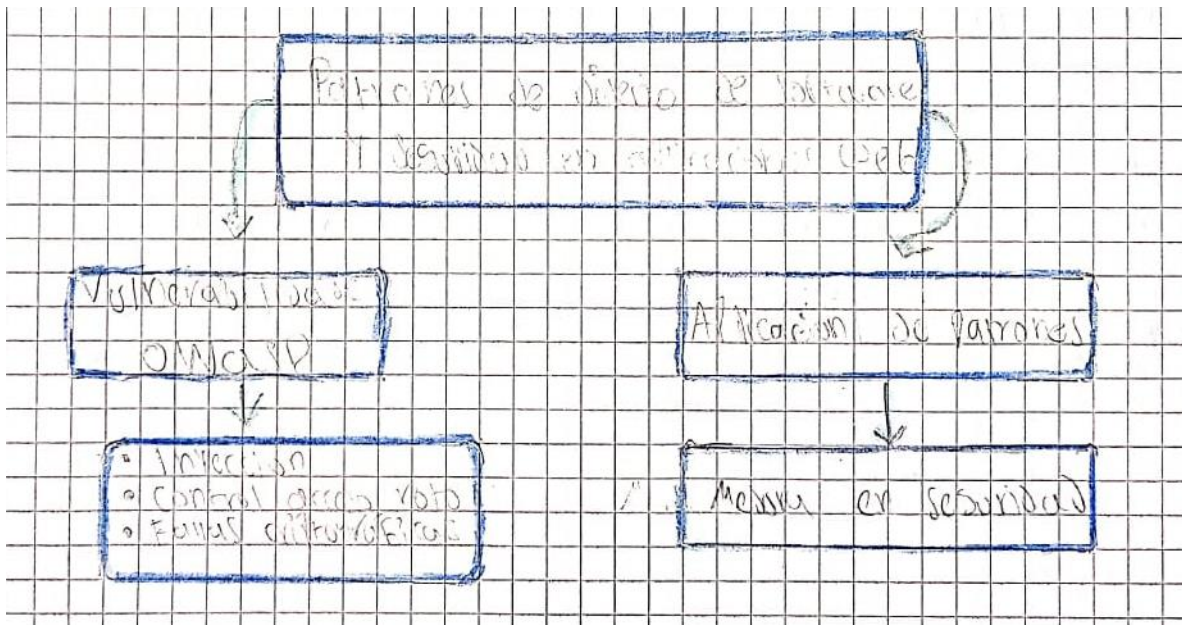 Patrones de Diseño de Software
Y Seguridad en aplicaciones Web
Vulnerabilidades
OWASP
Aplicacion de Patrones
• Inyeccion
• Control acceso roto
• Fallas criptograficas
Mejora en seguridad